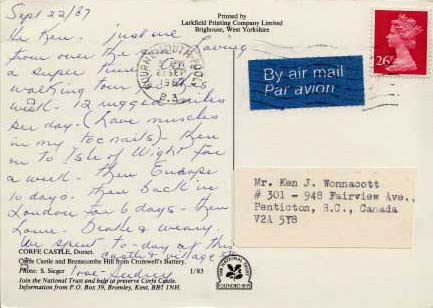 Sept 22/87
Hi Ken. Just me
from over the pond. Having
a super time
walking tour this
week - 12 rugged miles
per day. (have muscles
in my toe nails) - then
on to Isle of Wight for
a week - then Europe
10 days. then back in
London for 6 days - then
home. Death & weary.
We spent to-day at this
castle & village
Love - Audrey
Printed by
Larkfield Printing Company Limited
Brighouse, West Yorkshire
By air mail
Par avion
26P
BOURNEMOUTH POOLE
SEP
Mr. Ken J. Wonnacott
# 301 - 948 Fairview Ave.,
Penticton, B.C., Canada
V2A 5Y8
CORFE CASTLE, Dorset.
Corfe Castle and Brenscombe Hill from Cromwell's Battery.
Photo: S. Sieger 1/83
Join the National Trust and help to preserve Corfe Castle.
Information from P.O. Box 39, Bromley, Kent, BR1 1NH.
THE NATIONAL TRUST
FOUNDED 1895